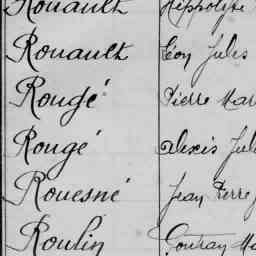 Rouault Hippolyte
Rouault Léon Jules
Rougé Pierre Mar
Rougé Alexis Jul
Rouesné Jean Pierre
Roulin Gontran Ma